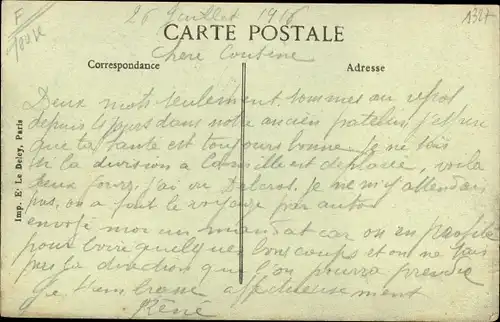 F
26 Juillet 1916
A327
CARTE POSTALE
Chere Cousine
Correspondance
Adresse
Imp. E. Le Deley, Paris
Deux mots seulement sommes au repos
depuis jours dans notre ancien patelin j'espere
que ta sante est toujours bonne je ne sais
si la division a Camille est deplacee, voila
deux jours j'ai vu je ne m'y attendais
pas, on a fait le voyage par autos
envoye moi un mandat car on en profite
pour boire quelques bons coups et on ne sais
pas la direction que l'on pourra prendre
Je t'embrasse affectueusement
René